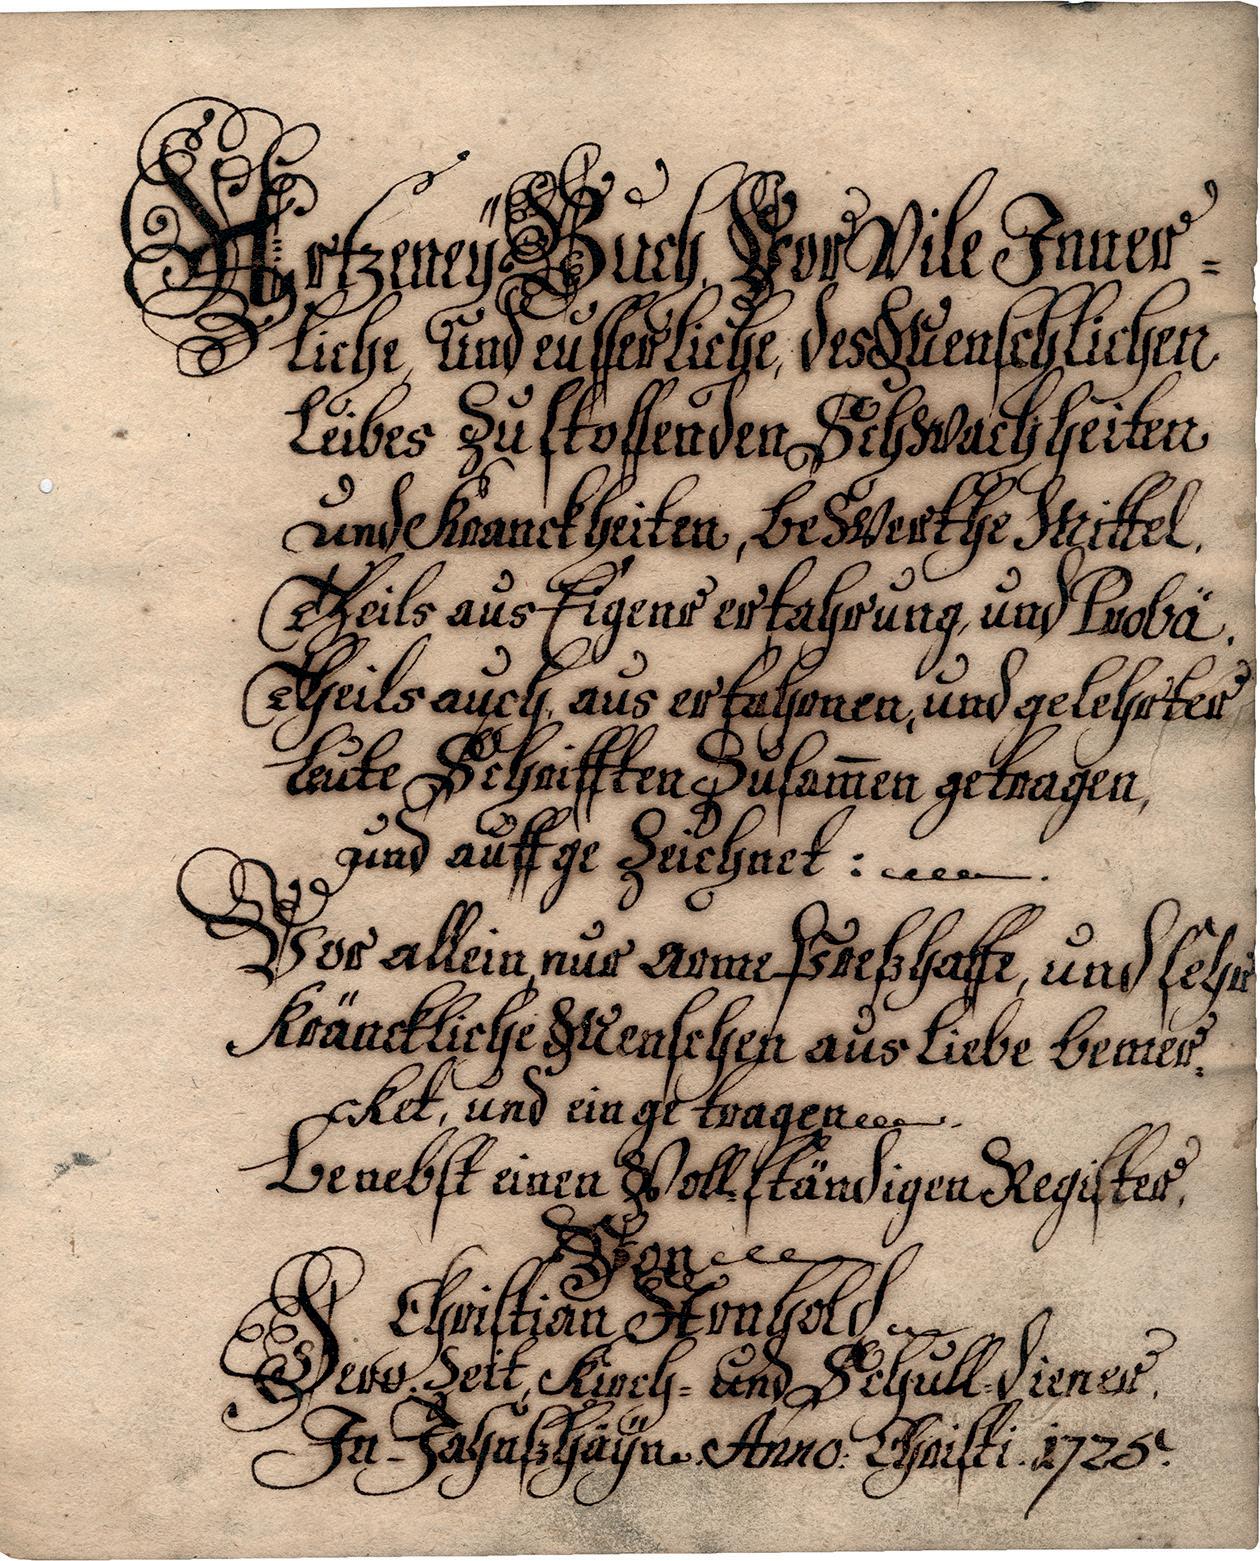 Artzeneÿ Buch, Vor Vile Inner=
liche, Und eusserliche, des Menschlichen
Leibes Zu stossenden Schwachheiten
und Kranckheiten, beWerthe Mittel.
Theils aus Eigenr erfahrung, und Probä.
Theils auch, aus erfahrnen, und gelehrter
leute Schrifften Zusam̄en getragen,
und auff ge Zeichnet :
Vor allein, nur arme Preßhaffe, und sehr
Kränckliche Menschen aus Liebe bemer=
cket, und ein ge tragen
benebst einen Voll=ständigen Register,
Von
Christian Arnhold
Dero. Zeit, Kirch= und Schull=diener.
In Jahnßhäÿn. Anno: Christi. 1725.